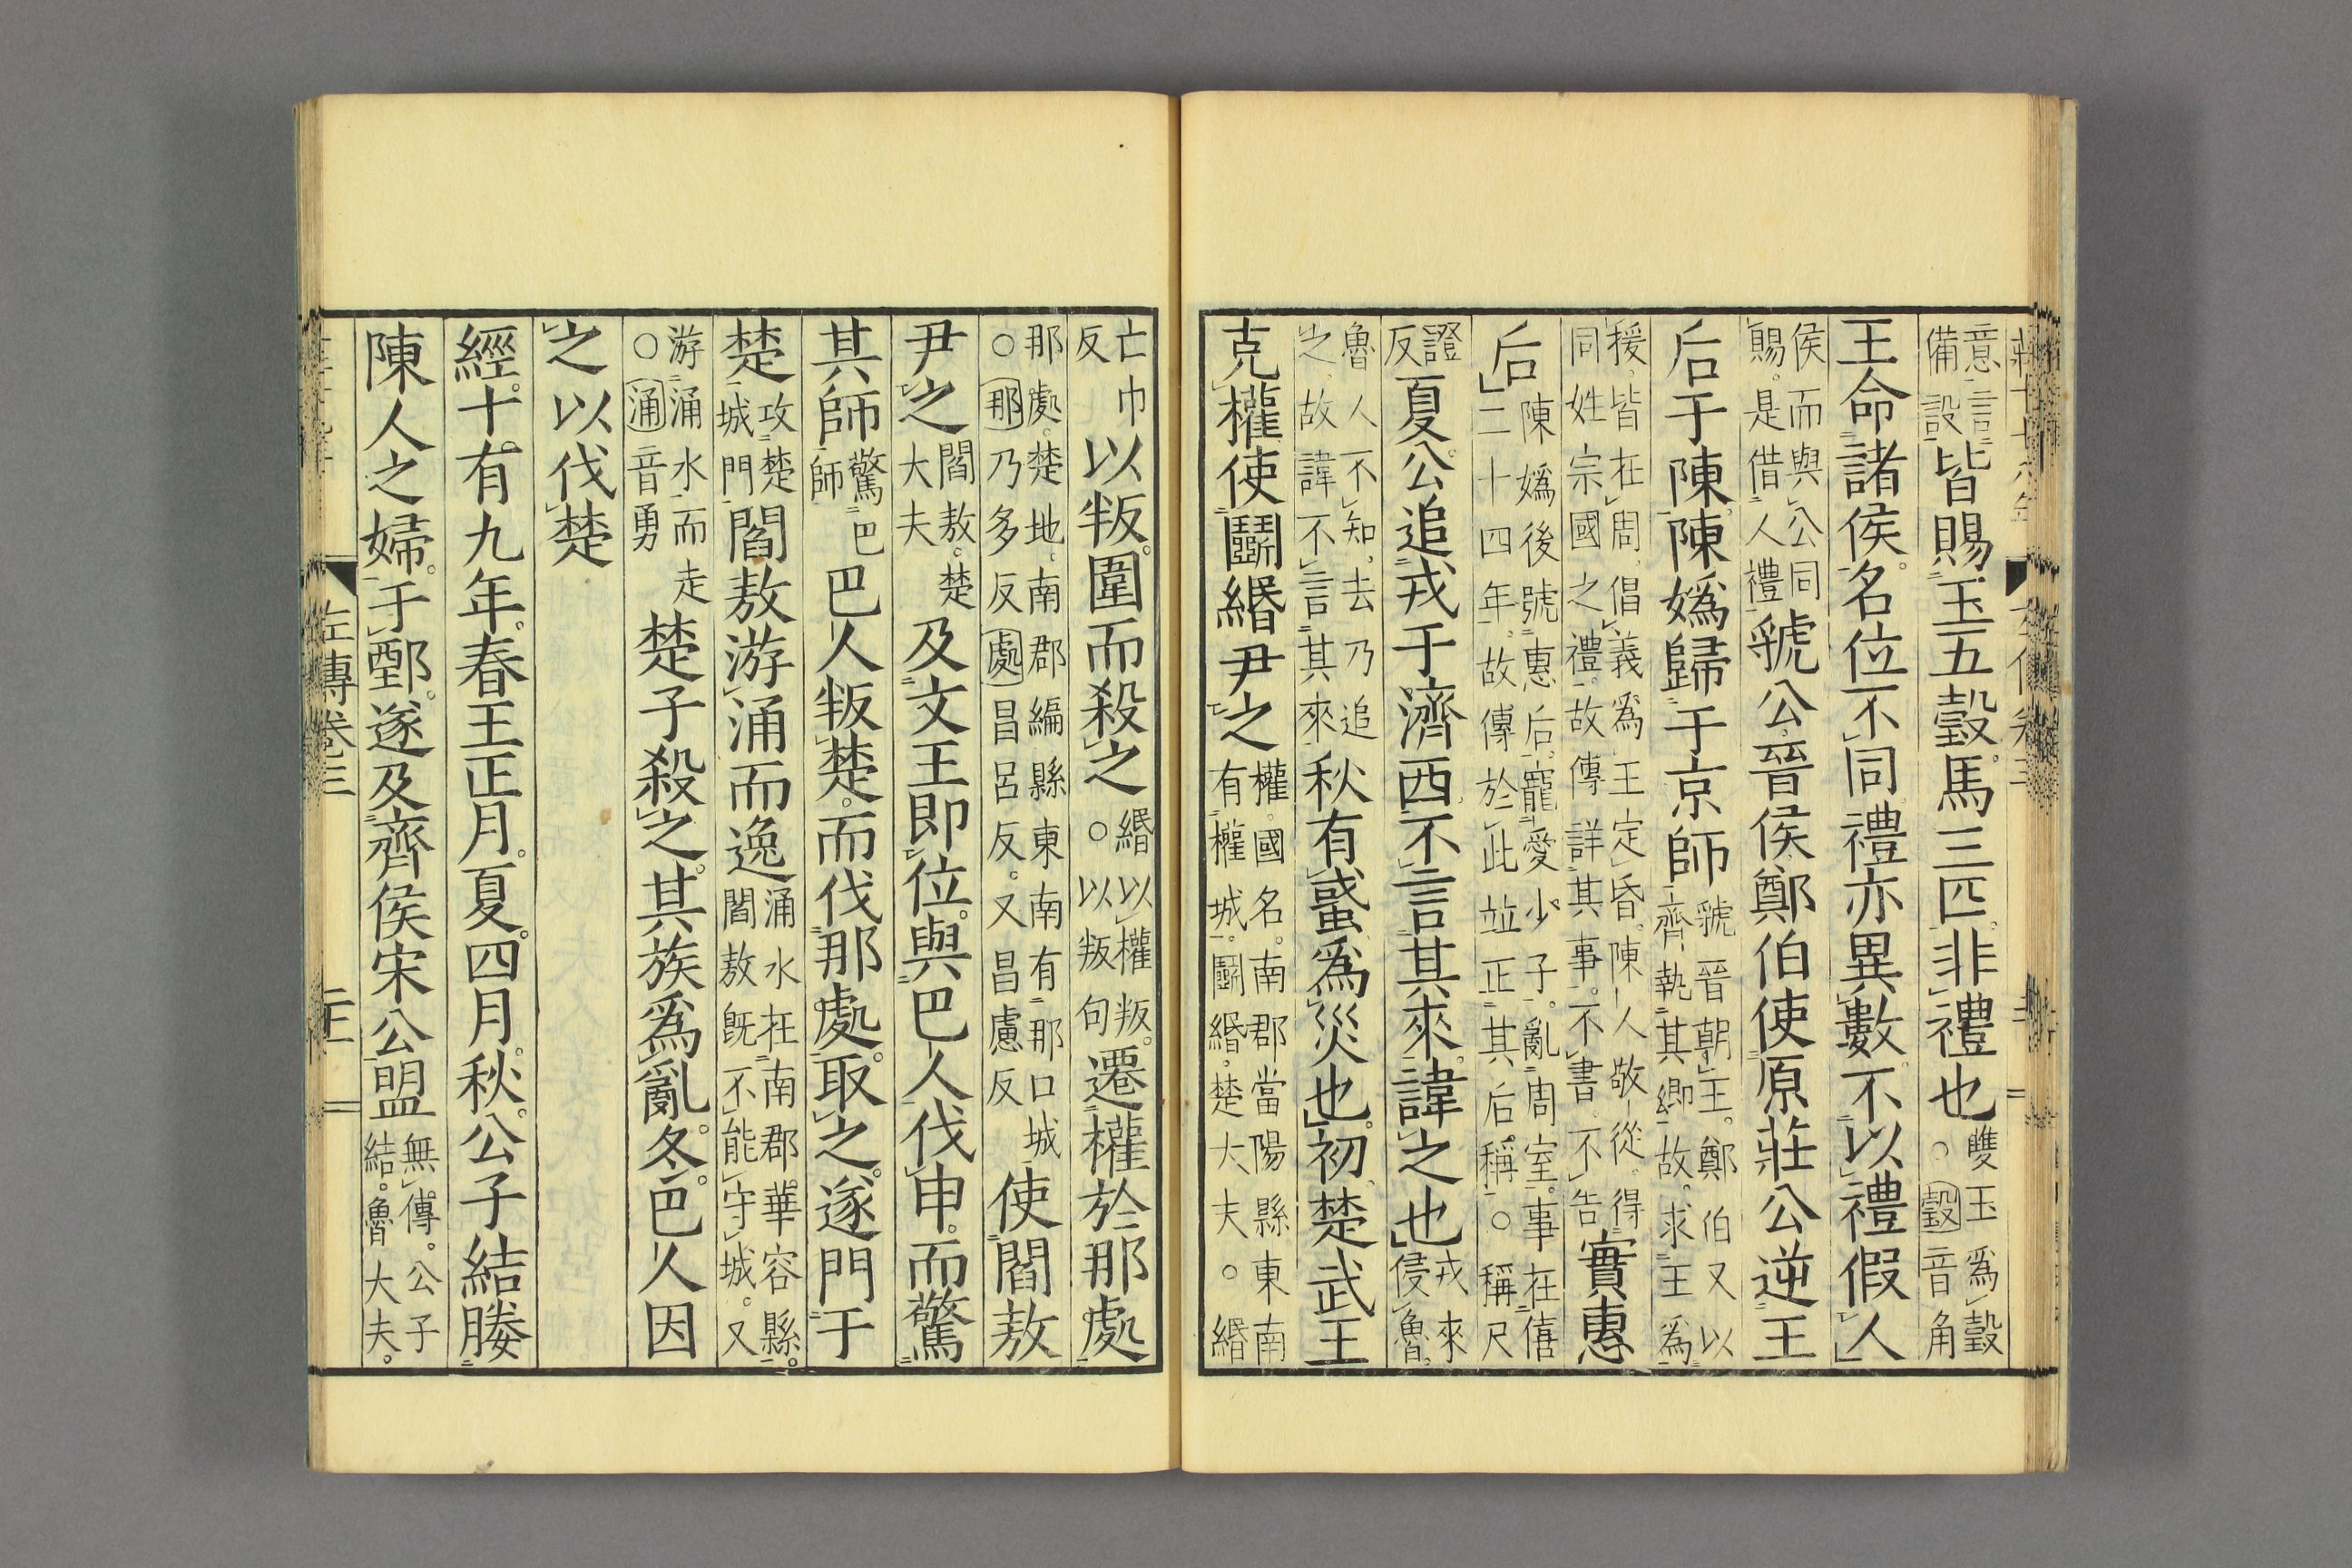 意言備設皆賜玉五瑴馬三匹非禮也雙玉爲瑴○瑴音角
王命諸侯名位不同禮亦異數不以禮假人
侯而與公同賜是借人禮虢公晉侯鄭伯使原莊公逆王
后于陳陳媯歸于京師虢晉朝王鄭伯又以齊執其卿故求王爲
援皆在周倡義爲王定昏陳人敬從得同姓宗國之禮故傳詳其事不書不告實惠
后陳媯後號惠后寵愛少子亂周室事在僖二十四年故傳於此並正其后稱○稱尺
證反夏公追戎于濟西不言其來諱之也戎來侵魯
魯人不知去乃追之故諱不言其來秋有蜮爲災也初楚武王
克權使鬭緡尹之權國名南郡當陽縣東南有權城鬭緡楚大夫○緡
亡巾反以叛圍而殺之緡以權叛○以叛句遷權於那處
那處楚地南郡編縣東南有那口城○那乃多反處昌呂反又昌慮反使閻敖
尹之閻敖楚大夫及文王即位與巴人伐申而驚
其師驚巴師巴人叛楚而伐那處取之遂門于
楚攻楚城門閻敖游涌而逸涌水在南郡華容縣閻敖既不能守城又
游涌水而走○涌音勇楚子殺之其族爲亂冬巴人因
之以伐楚
經十有九年春王正月夏四月秋公子結媵
陳人之婦于鄄遂及齊侯宋公盟無傳公子結魯大夫
左傳卷三